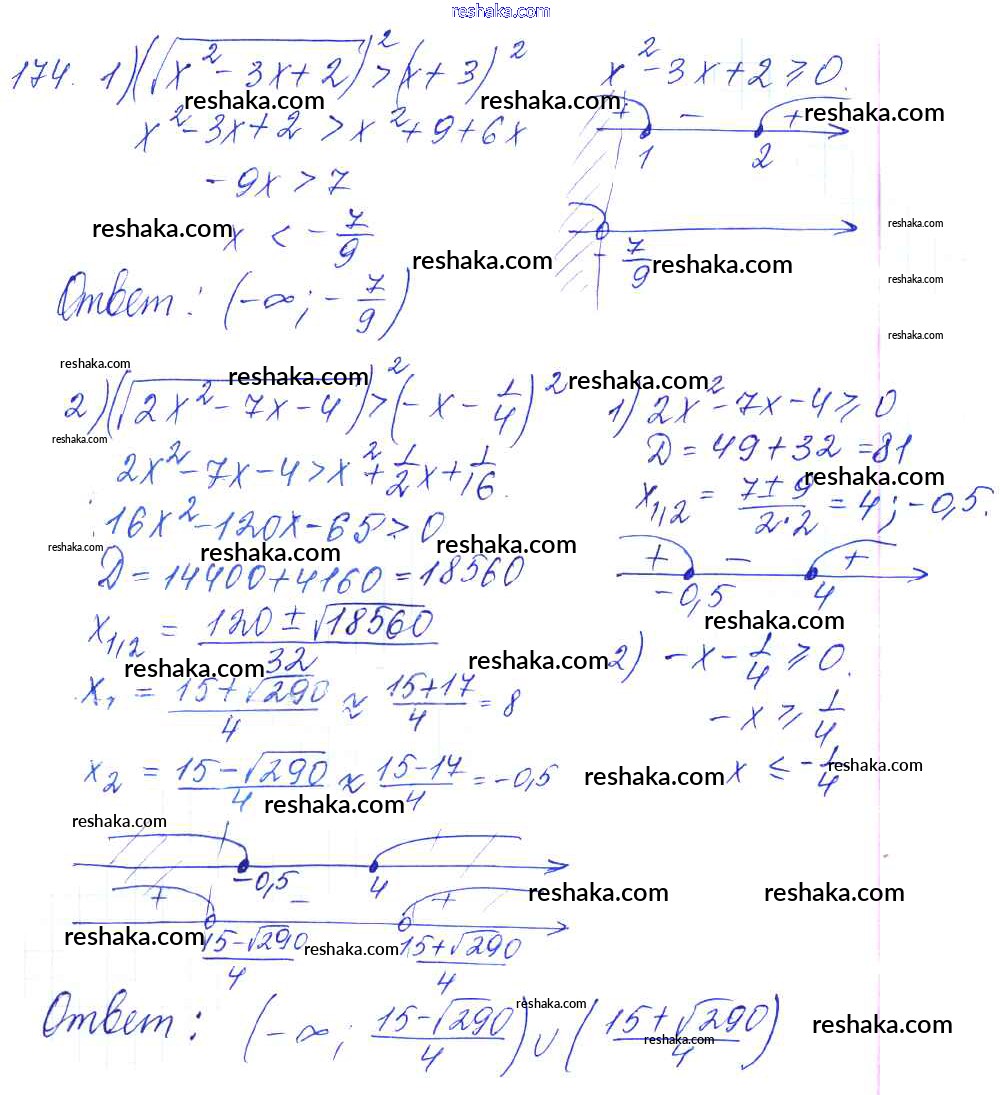 reshaka.com
174. 1) (√(x² - 3x + 2))² > (x + 3)²
x² - 3x + 2 ≥ 0.
reshaka.com reshaka.com reshaka.com
x² - 3x + 2 > x² + 9 + 6x
+ - +
1 2
-9x > 7
reshaka.com x < -7/9
reshaka.com
reshaka.com reshaka.com
-7/9
reshaka.com
Ответ: (-∞; -7/9)
reshaka.com
reshaka.com reshaka.com reshaka.com
2) (√(2x² - 7x - 4))² > (-x - 1/4)²
1) 2x² - 7x - 4 ≥ 0
reshaka.com
Д = 49 + 32 = 81
2x² - 7x - 4 > x² + 1/2x + 1/16.
reshaka.com
x₁,₂ = (7 ± 9)/(2·2) = 4; -0,5.
16x² - 120x - 65 > 0
reshaka.com reshaka.com reshaka.com
+ - +
-0,5 4
Д = 14400 + 4160 = 18560
reshaka.com
x₁,₂ = (120 ± √18560)/32
reshaka.com reshaka.com
2) -x - 1/4 ≥ 0.
x₁ = (15 + √290)/4 ≈ (15 + 17)/4 = 8
-x ≥ 1/4
x₂ = (15 - √290)/4 ≈ (15 - 17)/4 = -0,5
reshaka.com x ≤ -1/4 reshaka.com
reshaka.com
reshaka.com
-0,5 4
+ - +
reshaka.com reshaka.com
reshaka.com (15 - √290)/4 reshaka.com (15 + √290)/4
Ответ: (-∞; (15 - √290)/4) ∪ ((15 + √290)/4)
reshaka.com reshaka.com reshaka.com